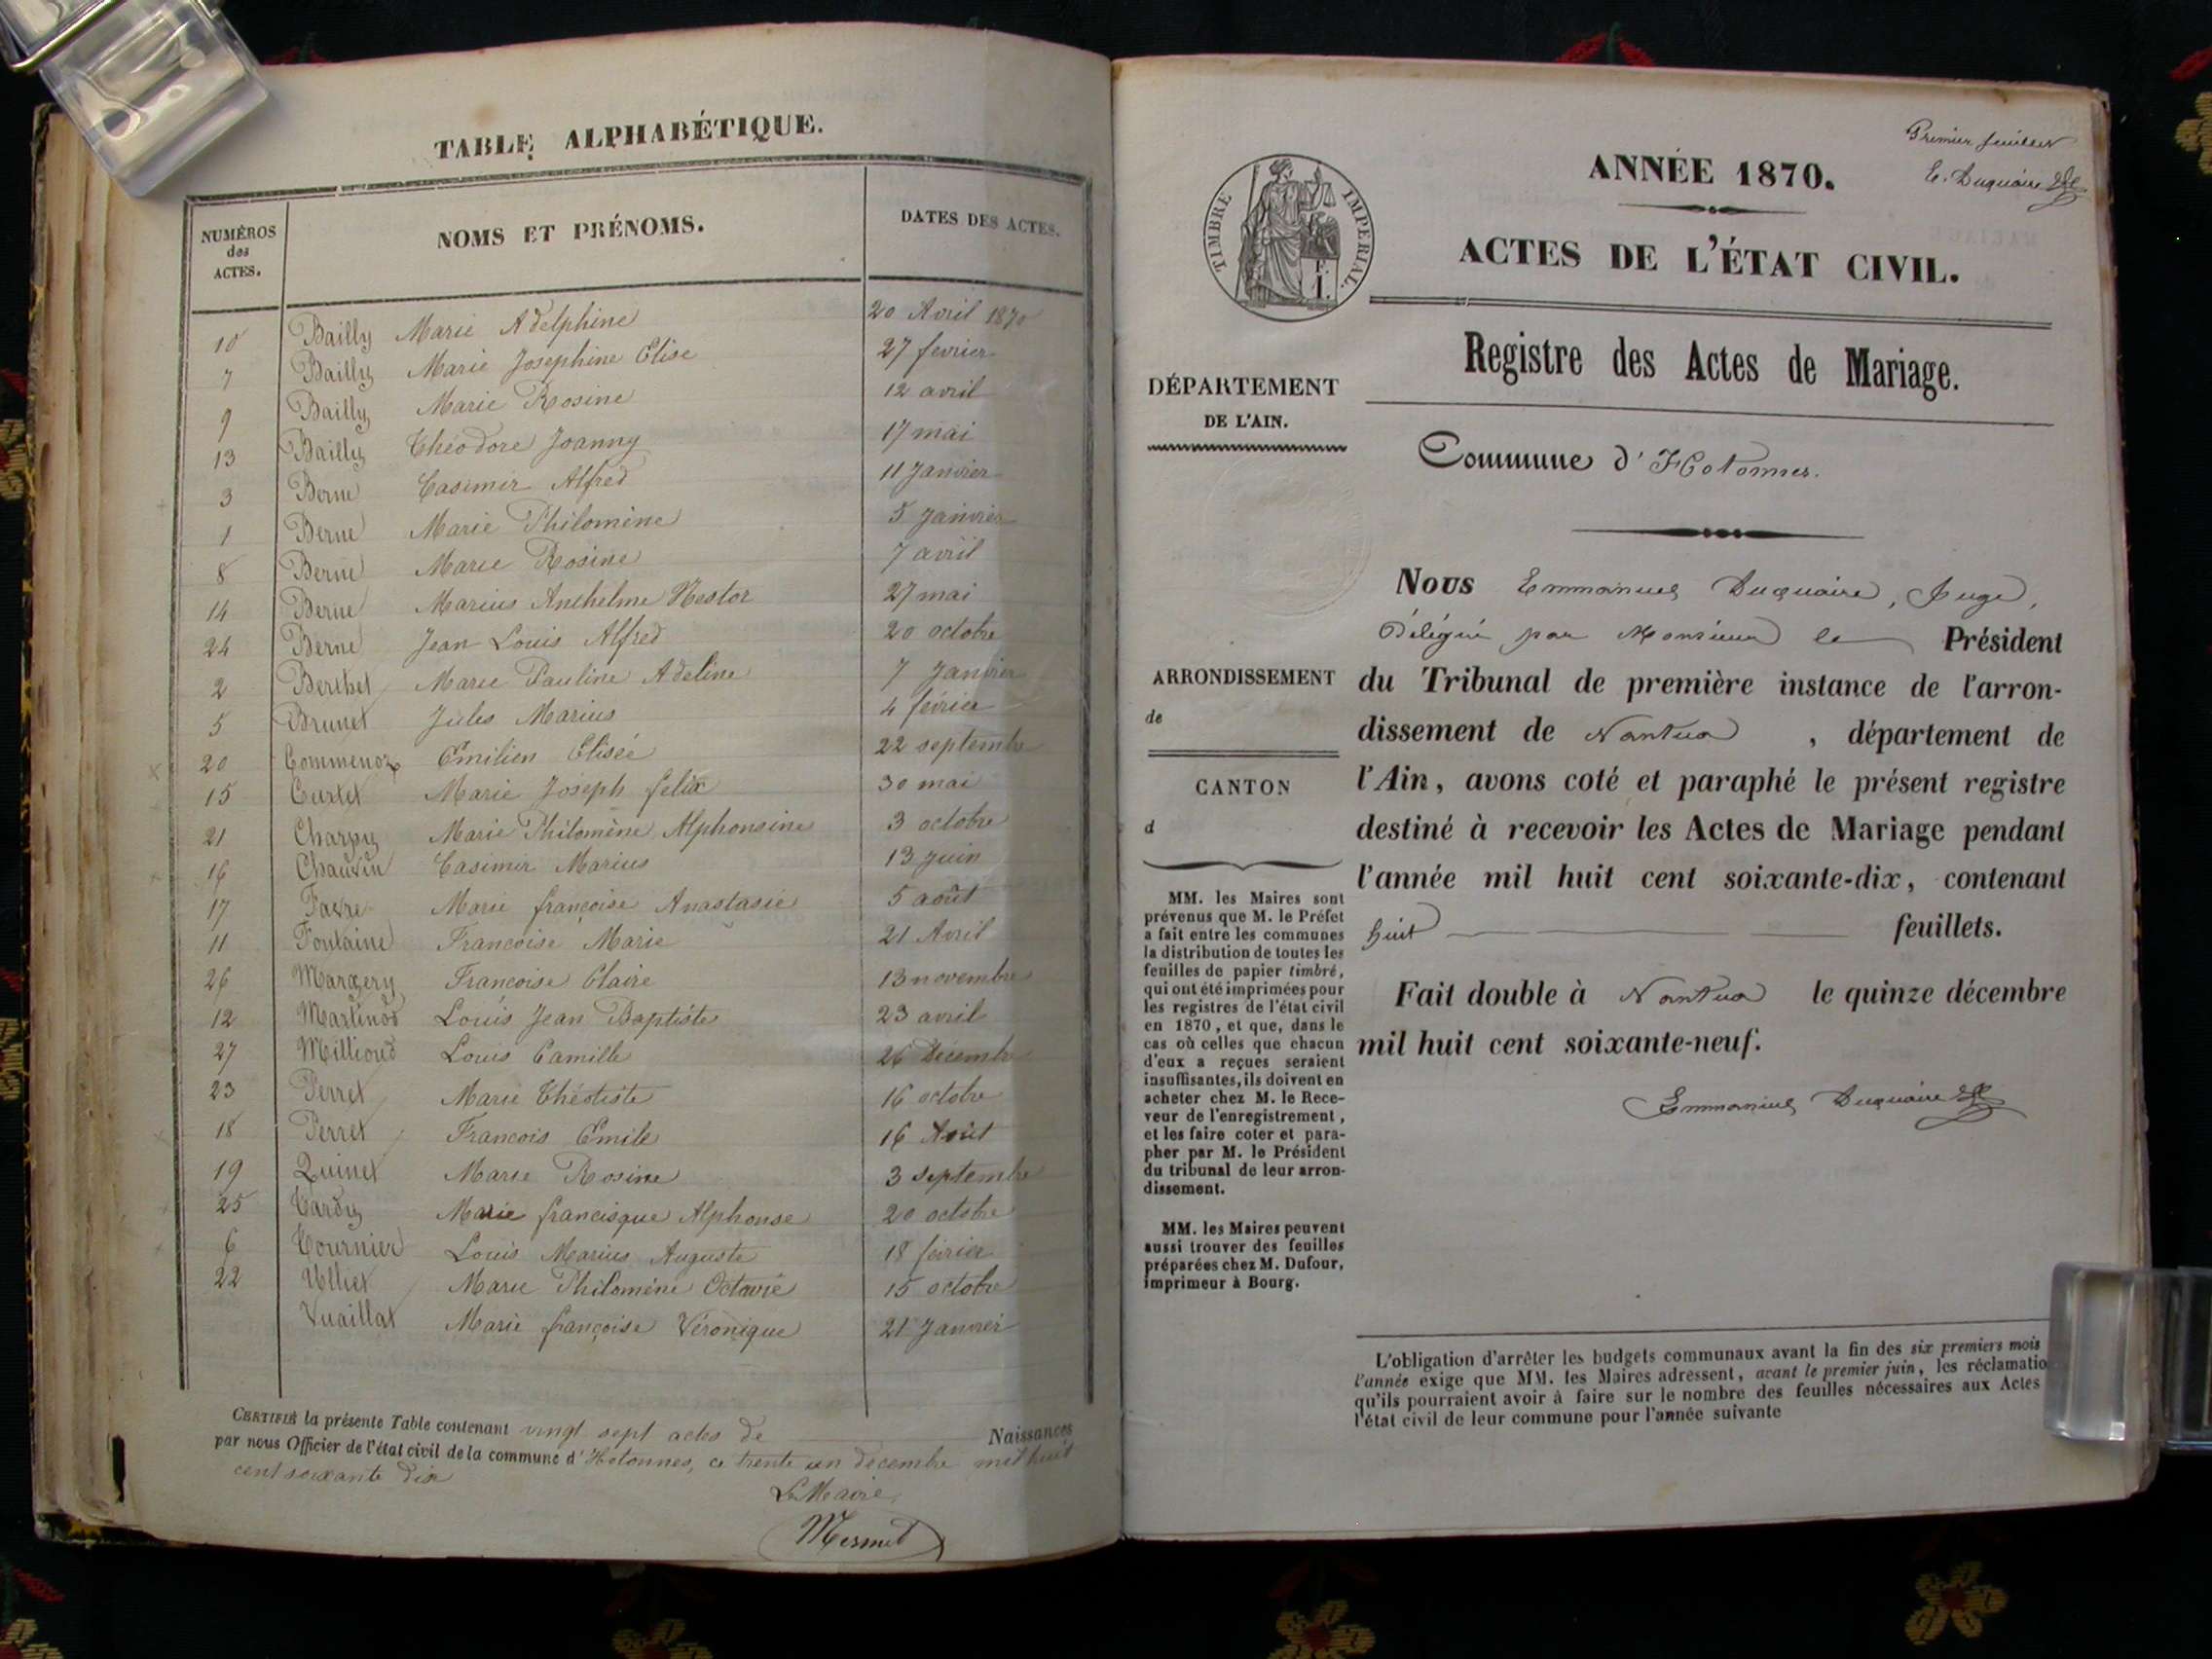 TABLE ALPHABÉTIQUE.
NUMÉROS
des
ACTES.
NOMS ET PRÉNOMS.
DATES DES ACTES.
10 Bailly Marie Adelphine 20 Avril 1870
7 Bailly Marie Josephine Elise 27 fevrier
9 Bailly Marie Rosine 12 avril
13 Bailly Théodore Joanny 17 mai
3 Berne Casimir Alfred 11 Janvier
1 Berne Marie Philomène 5 Janvier
8 Berne Marie Rosine 7 avril
14 Berne Marius Anthelme Nestor 27 mai
24 Berne Jean Louis Alfred 20 octobre
2 Berthet Marie Pauline Adeline 7 Janvier
5 Brunet Jules Marius 4 février
20 Commenoz Emilien Elisée 22 septembre
15 Curtet Marie Joseph felix 30 mai
21 Charpy Marie Philomène Alphonsine 3 octobre
16 Chauvin Casimir Marius 13 juin
17 Favre Marie françoise Anastasie 5 août
11 Fontaine Francoise Marie 21 Avril
26 Margery Francoise Claire 13 novembre
12 Martinod Louis Jean Baptiste 23 avril
27 Milliond Louis Camille 26 Decembre
23 Perret Marie Théotiste 16 octobre
18 Perret Francois Emile 16 Août
19 Quinet Marie Rosine 3 septembre
25 Tardy Marie francisque Alphonse 20 octobre
6 Tournier Louis Marius Auguste 18 février
22 Ulliet Marie Philomène Octavie 15 octobre
Vuaillat Marie françoise Véronique 21 Janvier
CERTIFIÉ la présente Table contenant vingt sept actes de Naissances
par nous Officier de l'état civil de la commune d'Hotonnes, ce trente un decembre mil huit
cent soixante dix
Le Maire,
Mermet
Premier feuillet
E. Duquaire
TIMBRE IMPERIAL.
ANNÉE 1870.
ACTES DE L'ÉTAT CIVIL.
Registre des Actes de Mariage.
DÉPARTEMENT
DE L'AIN.
Commune d'Hotonnes.
ARRONDISSEMENT
de
CANTON
d
MM. les Maires sont
prévenus que M. le Préfet
a fait entre les communes
la distribution de toutes les
feuilles de papier timbré,
qui ont été imprimées pour
les registres de l'état civil
en 1870, et que, dans le
cas où celles que chacun
d'eux a reçues seraient
insuffisantes, ils doivent en
acheter chez M. le Rece-
veur de l'enregistrement,
et les faire coter et para-
pher par M. le Président
du tribunal de leur arron-
dissement.
MM. les Maires peuvent
aussi trouver des feuilles
préparées chez M. Dufour,
imprimeur à Bourg.
NOUS Emmanuel Duquaire, Juge,
Délégué par Monsieur le Président
du Tribunal de première instance de l'arron-
dissement de Nantua, département de
l'Ain, avons coté et paraphé le présent registre
destiné à recevoir les Actes de Mariage pendant
l'année mil huit cent soixante-dix, contenant
huit feuillets.
Fait double à Nantua le quinze décembre
mil huit cent soixante-neuf.
Emmanuel Duquaire
L'obligation d'arrêter les budgets communaux avant la fin des six premiers mois
l'année exige que MM. les Maires adressent, avant le premier juin, les réclamatio
qu'ils pourraient avoir à faire sur le nombre des feuilles nécessaires aux Actes
l'état civil de leur commune pour l'année suivante